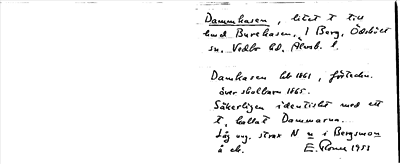 Dammhasen, litet t till
hmd Burehasen, i Berg, Ödsbült
sn. Vedbo hd. Älvsb. l.
Damhasen hb 1861, förteckn.
över skollarn 1865.
Säkerligen identiskt med ett
t. kallat Dammarna.
Låg ung. strax N i Bergsmon
å ek. E. Roner 1953